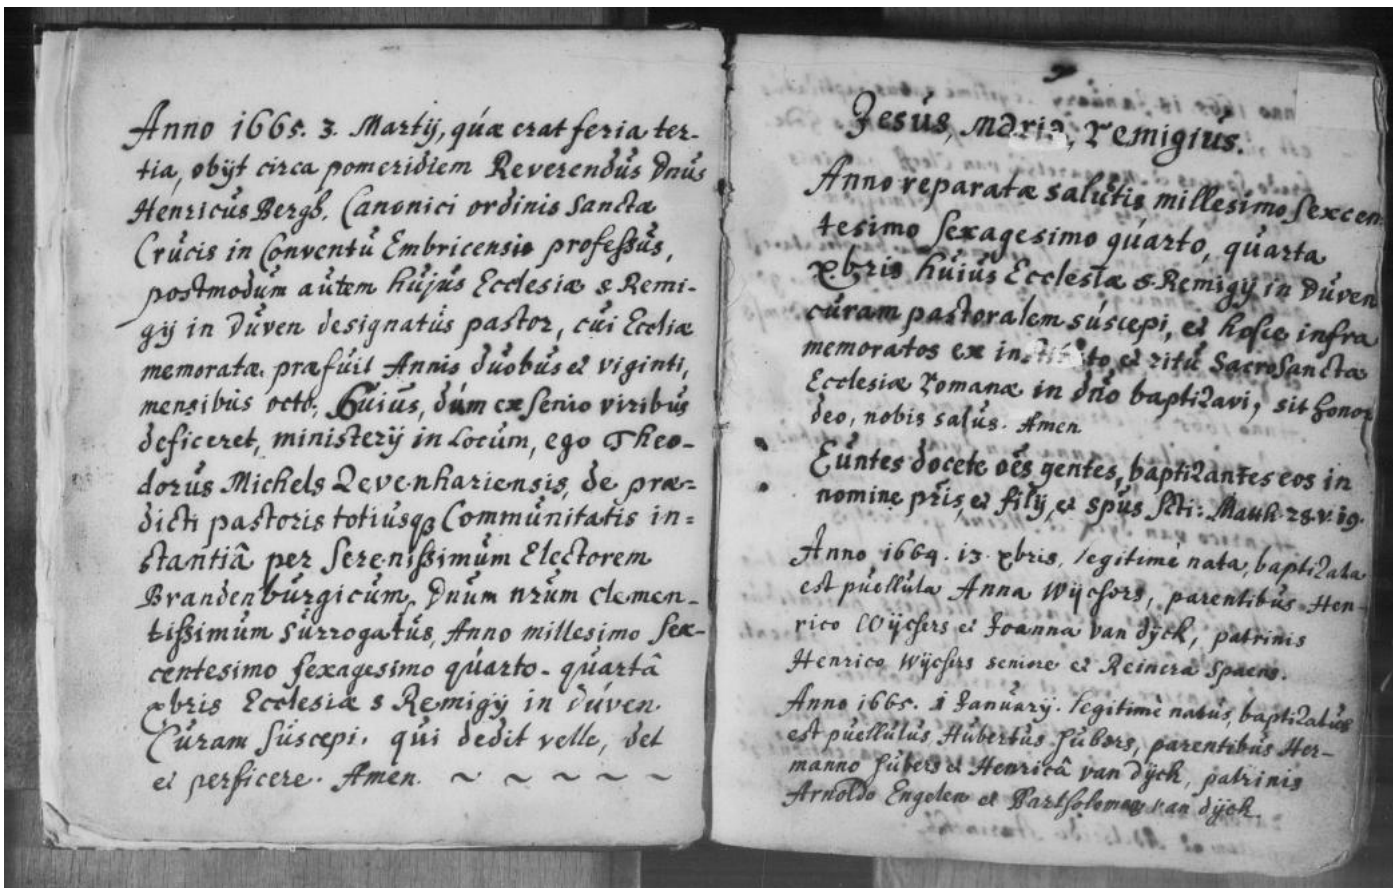 Anno 1665. 3. Martij, quæ erat feria ter-
tia, obijt circa pomeridiem Reverendus Dnus
Henricus Bergh. Canonici ordinis Sanctæ
Crucis in Conventu Embricensis professus,
postmodum autem hujus Ecclesiæ S. Remi-
gij in Duven designatus pastor, cui Eccliæ
memoratæ præfuit Annis duobus et viginti,
mensibus octo, Huius, dum ex senio viribus
deficeret, ministerij in Locum, ego Theo-
dorus Michels Zevenhariensis, de præ-
dicti pastoris totiusq3 Communitatis in=
stantiâ per Serenissimum Electorem
Brandenburgicum, Dnum nrum clemen-
tissimum surrogatus, Anno millesimo sex-
centesimo sexagesimo quarto - quartâ
xbris Ecclesiæ S Remigij in Duven
Curam suscepi. qui dedit velle, det
et perficere. Amen. ~ ~ ~ ~ ~
Jesus, Maria, remigius.
Anno reparatæ salutis millesimo sexcen
tesimo sexagesimo quarto, quarta
xbris huius Ecclesiæ S. Remigij in Duven
curam pastoralem suscepi, et hosce infra
memoratos ex instituto et ritu SacroSanctæ
Ecclesiæ romanæ in dno baptizavi, sit honor
deo, nobis salus. Amen
Euntes docete oes gentes, baptizantes eos in
nomine pris, et filij, et spus scti: Math. 28. v. 19.
Anno 1664. 13. xbris, legitimè nata, baptizata
est puellula Anna Wijchers, parentibus Hen-
rico Wijchers et Joanna van dijck, patrinis
Henrico Wijchers seniore et Reinera Spaens.
Anno 1665. 1 Januarij. legitimè natus, baptizatus
est puellulus Hubertus hubers, parentibus Her-
manno hubers et Henricâ van Dijck, patrinis
Arnoldo Engelen et Bartholomea van dijck.